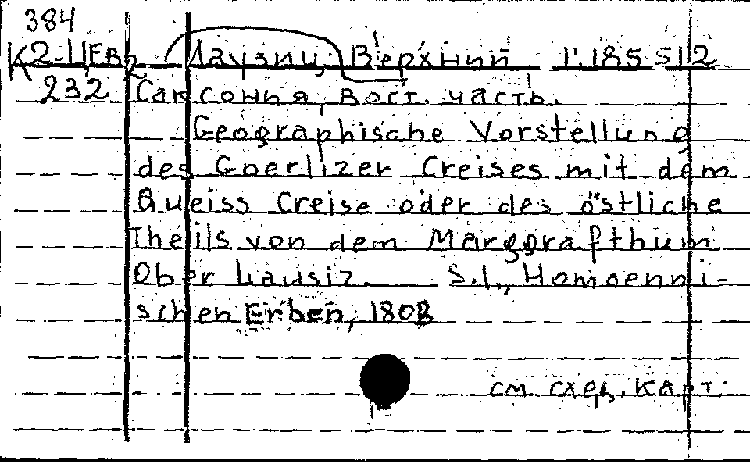 384
К2-II ЕВ2 Лаузиц, Верхний 1:185 512
232 Саксония, вост. часть.
Geographische Vorstellung
des Goerlizer Creises mit dem
Queiss Creise oder des östliche
Theils von dem Marggrafthum
Ober Lausiz. S.l., Homoenni-
schen Erben, 1808
см. след. карт.